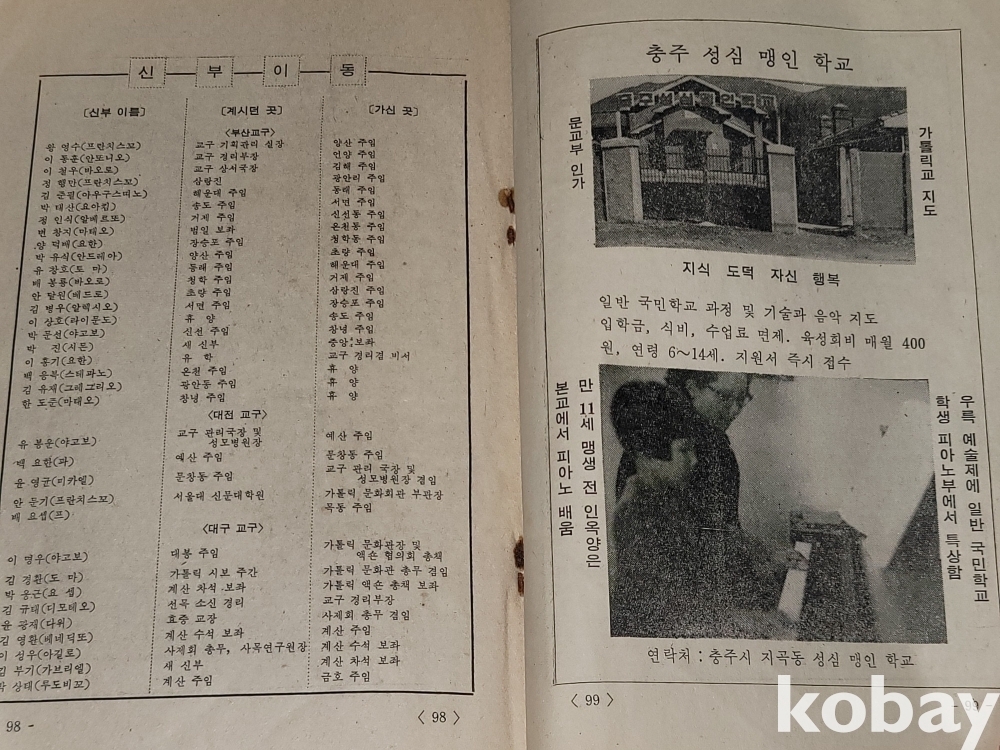 신 부 이 동
[신부 이름] [계시던 곳] [가신 곳]
<부산교구>
왕 영수(프란치스꼬) 교구 기획관리 실장 양산 주임
이 동훈(안또니오) 교구 경리부장 언양 주임
이 철우(바오로) 교구 상서국장 김해 주임
정 행만(프란치스꼬) 삼랑진 광안리 주임
김 준필(아우구스띠노) 해운대 주임 동래 주임
박 태산(요아킴) 송도 주임 서면 주임
정 인식(알베르또) 거제 주임 신선동 주임
변 창지(마태오) 범일 보좌 온천동 주임
양 덕배(요한) 장승포 주임 청학동 주임
박 유식(안드레아) 양산 주임 초량 주임
유 창호(도 마) 동래 주임 해운대 주임
배 봉룡(바오로) 청학 주임 거제 주임
안 달원(베드로) 초량 주임 삼랑진 주임
김 병우(알렉시오) 서면 주임 장승포 주임
이 상호(라이문도) 휴 양 송도 주임
박 문선(야고보) 신선 주임 창녕 주임
박 진(시몬) 새 신부 중앙 보좌
이 홍기(요한) 유 학 교구 경리겸 비서
백 응복(스테파노) 온천 주임 휴 양
김 유재(그레고리오) 광안동 주임 휴 양
한 도준(마태오) 창녕 주임 휴 양
<대전 교구>
유 봉운(야고보) 교구 관리국장 및 성모병원장 예산 주임
백 요한(과) 예산 주임 문창동 주임
윤 영균(미카엘) 문창동 주임 교구 관리 국장 및 성모병원장 겸임
안 둔기(프란치스꼬) 서울대 신문대학원 가톨릭 문화회관 부관장
배 요셉(프) 목동 주임
<대구 교구>
이 명우(야고보) 대봉 주임 가톨릭 문화관장 및 액숀 협의회 총책
김 경환(도 마) 가톨릭 시보 주간 가톨릭 문화관 총무 겸임
박 응근(요 셉) 계산 차석 보좌 가톨릭 액숀 총책 보좌
김 규태(디모테오) 선목 소신 경리 교구 경리부장
윤 광제(다위) 효중 교장 사제회 총무 겸임
김 영환(베네딕또) 계산 수석 보좌 계산 주임
이 성우(아길로) 사제회 총무, 사목연구원장 계산 수석 보좌
김 부기(가브리엘) 새 신부 계산 차석 보좌
상태(루도비꼬) 계산 주임 금호 주임
98 -
< 98 >
충주 성심 맹인 학교
문교부 인가
가톨릭교 지도
지식 도덕 자신 행복
일반 국민학교 과정 및 기술과 음악 지도
입학금, 식비, 수업료 면제. 육성회비 매월 400
원, 연령 6~14세. 지원서 즉시 접수
만 11세 맹생 전 인옥양은
본교에서 피아노 배움
우륵 예술제에 일반 국민학교
학생 피아노부에서 특상함
연락처 : 충주시 지곡동 성심 맹인 학교
< 99 >
- 99 -
kobay